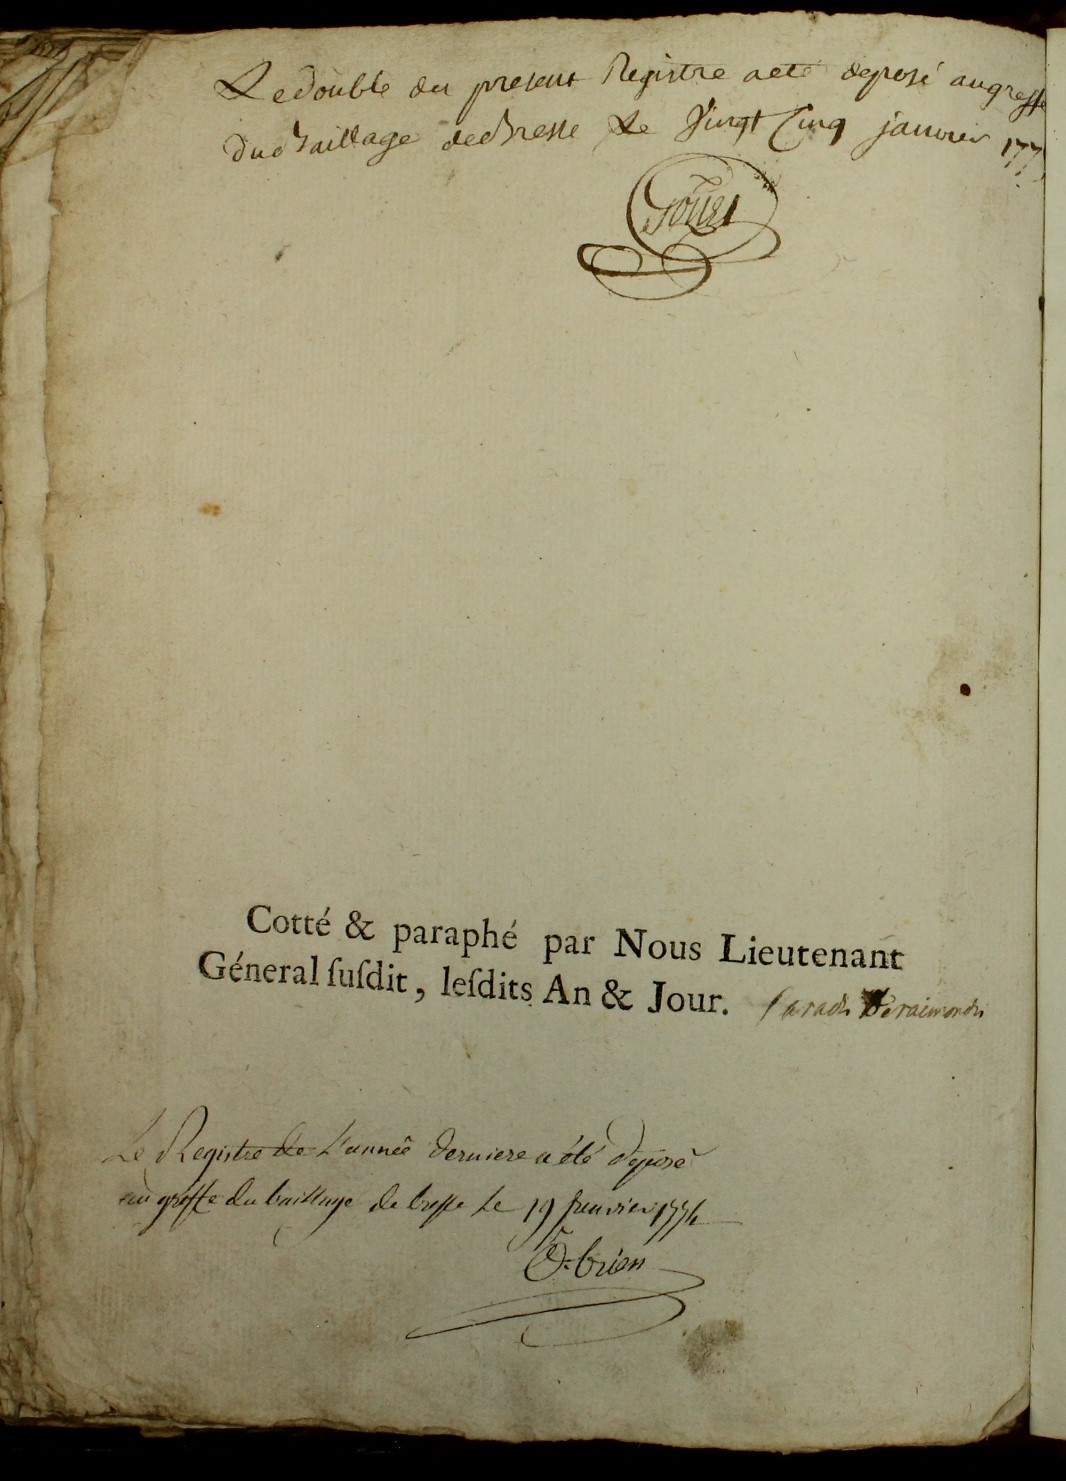 Le double du present Registre a eté deposé au greffe
du Baillage de Bresse Le Vingt Cinq janvier 177
Cotté & paraphé par Nous Lieutenant
Géneral ſuſdit, leſdits An & Jour. Paradis Deraimondis
Le Registre de L'année derniere a été déposé
au greffe du baillage de bresse le 19 Janvier 1774
O-brien